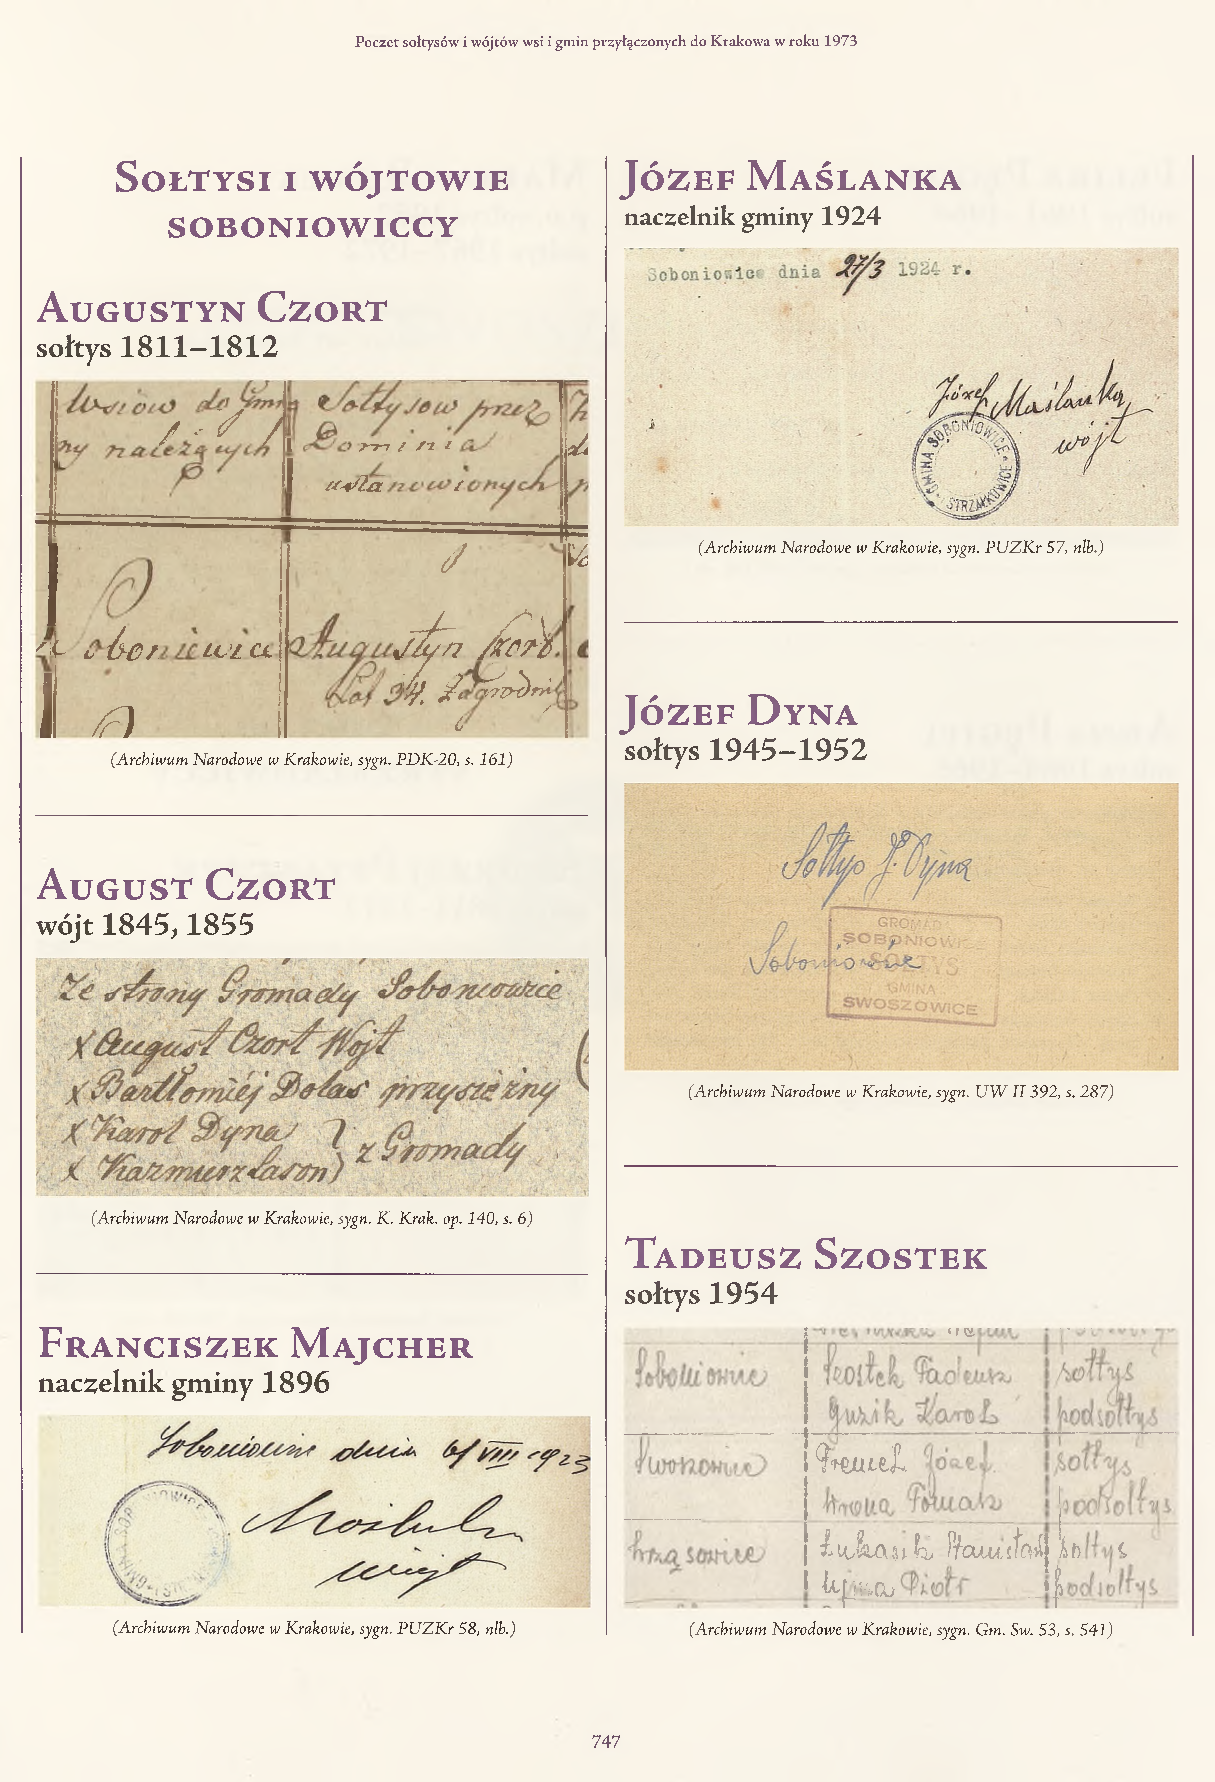 Poczet sołtysów i wójtów wsi i gmin przyłączonych do Krakowa w roku 1973
Sołtysi i wójtowie
soboniowiccy
Augustyn Czort
sołtys 1811–1812
Wsiów do Gmi
ny należących
Sołtysow przez
Dominia
ustanowionych
Soboniewice
Augustyn Czort.
Lat 34. Zagrodnik
(Archiwum Narodowe w Krakowie, sygn. PDK-20, s. 161)
August Czort
wójt 1845, 1855
Ze strony Gromady Soboniowice
X August Czort Wójt
X Bartłomiéj Dolas przysiężny
X Karol Dyna
X Kazmierz Lason } z Gromady
(Archiwum Narodowe w Krakowie, sygn. K. Krak. op. 140, s. 6)
Franciszek Majcher
naczelnik gminy 1896
Soboniowice dnia 6/VIII 1923
wójt
(Archiwum Narodowe w Krakowie, sygn. PUZKr 58, nlb.)
Józef Maślanka
naczelnik gminy 1924
Soboniowice dnia 27/3 1924 r.
Józef Maślanka
wójt
GMINA SOBONIOWICE
(Archiwum Narodowe w Krakowie, sygn. PUZKr 57, nlb.)
Józef Dyna
sołtys 1945–1952
Sołtys J. Dyna
Soboniowice
GROMADA
SOBONIOWICE
SOŁTYS
GMINA
SWOSZOWICE
(Archiwum Narodowe w Krakowie, sygn. UW II 392, s. 287)
Tadeusz Szostek
sołtys 1954
Soboniowice Szostek Tadeusz sołtys
Guzik Karol podsołtys
Swoszowice Józef sołtys
Wrona podsołtys
Wrząsowice Łukasik Stanisław sołtys
Piotr podsołtys
(Archiwum Narodowe w Krakowie, sygn. Gm. Sw. 53, s. 541)
747